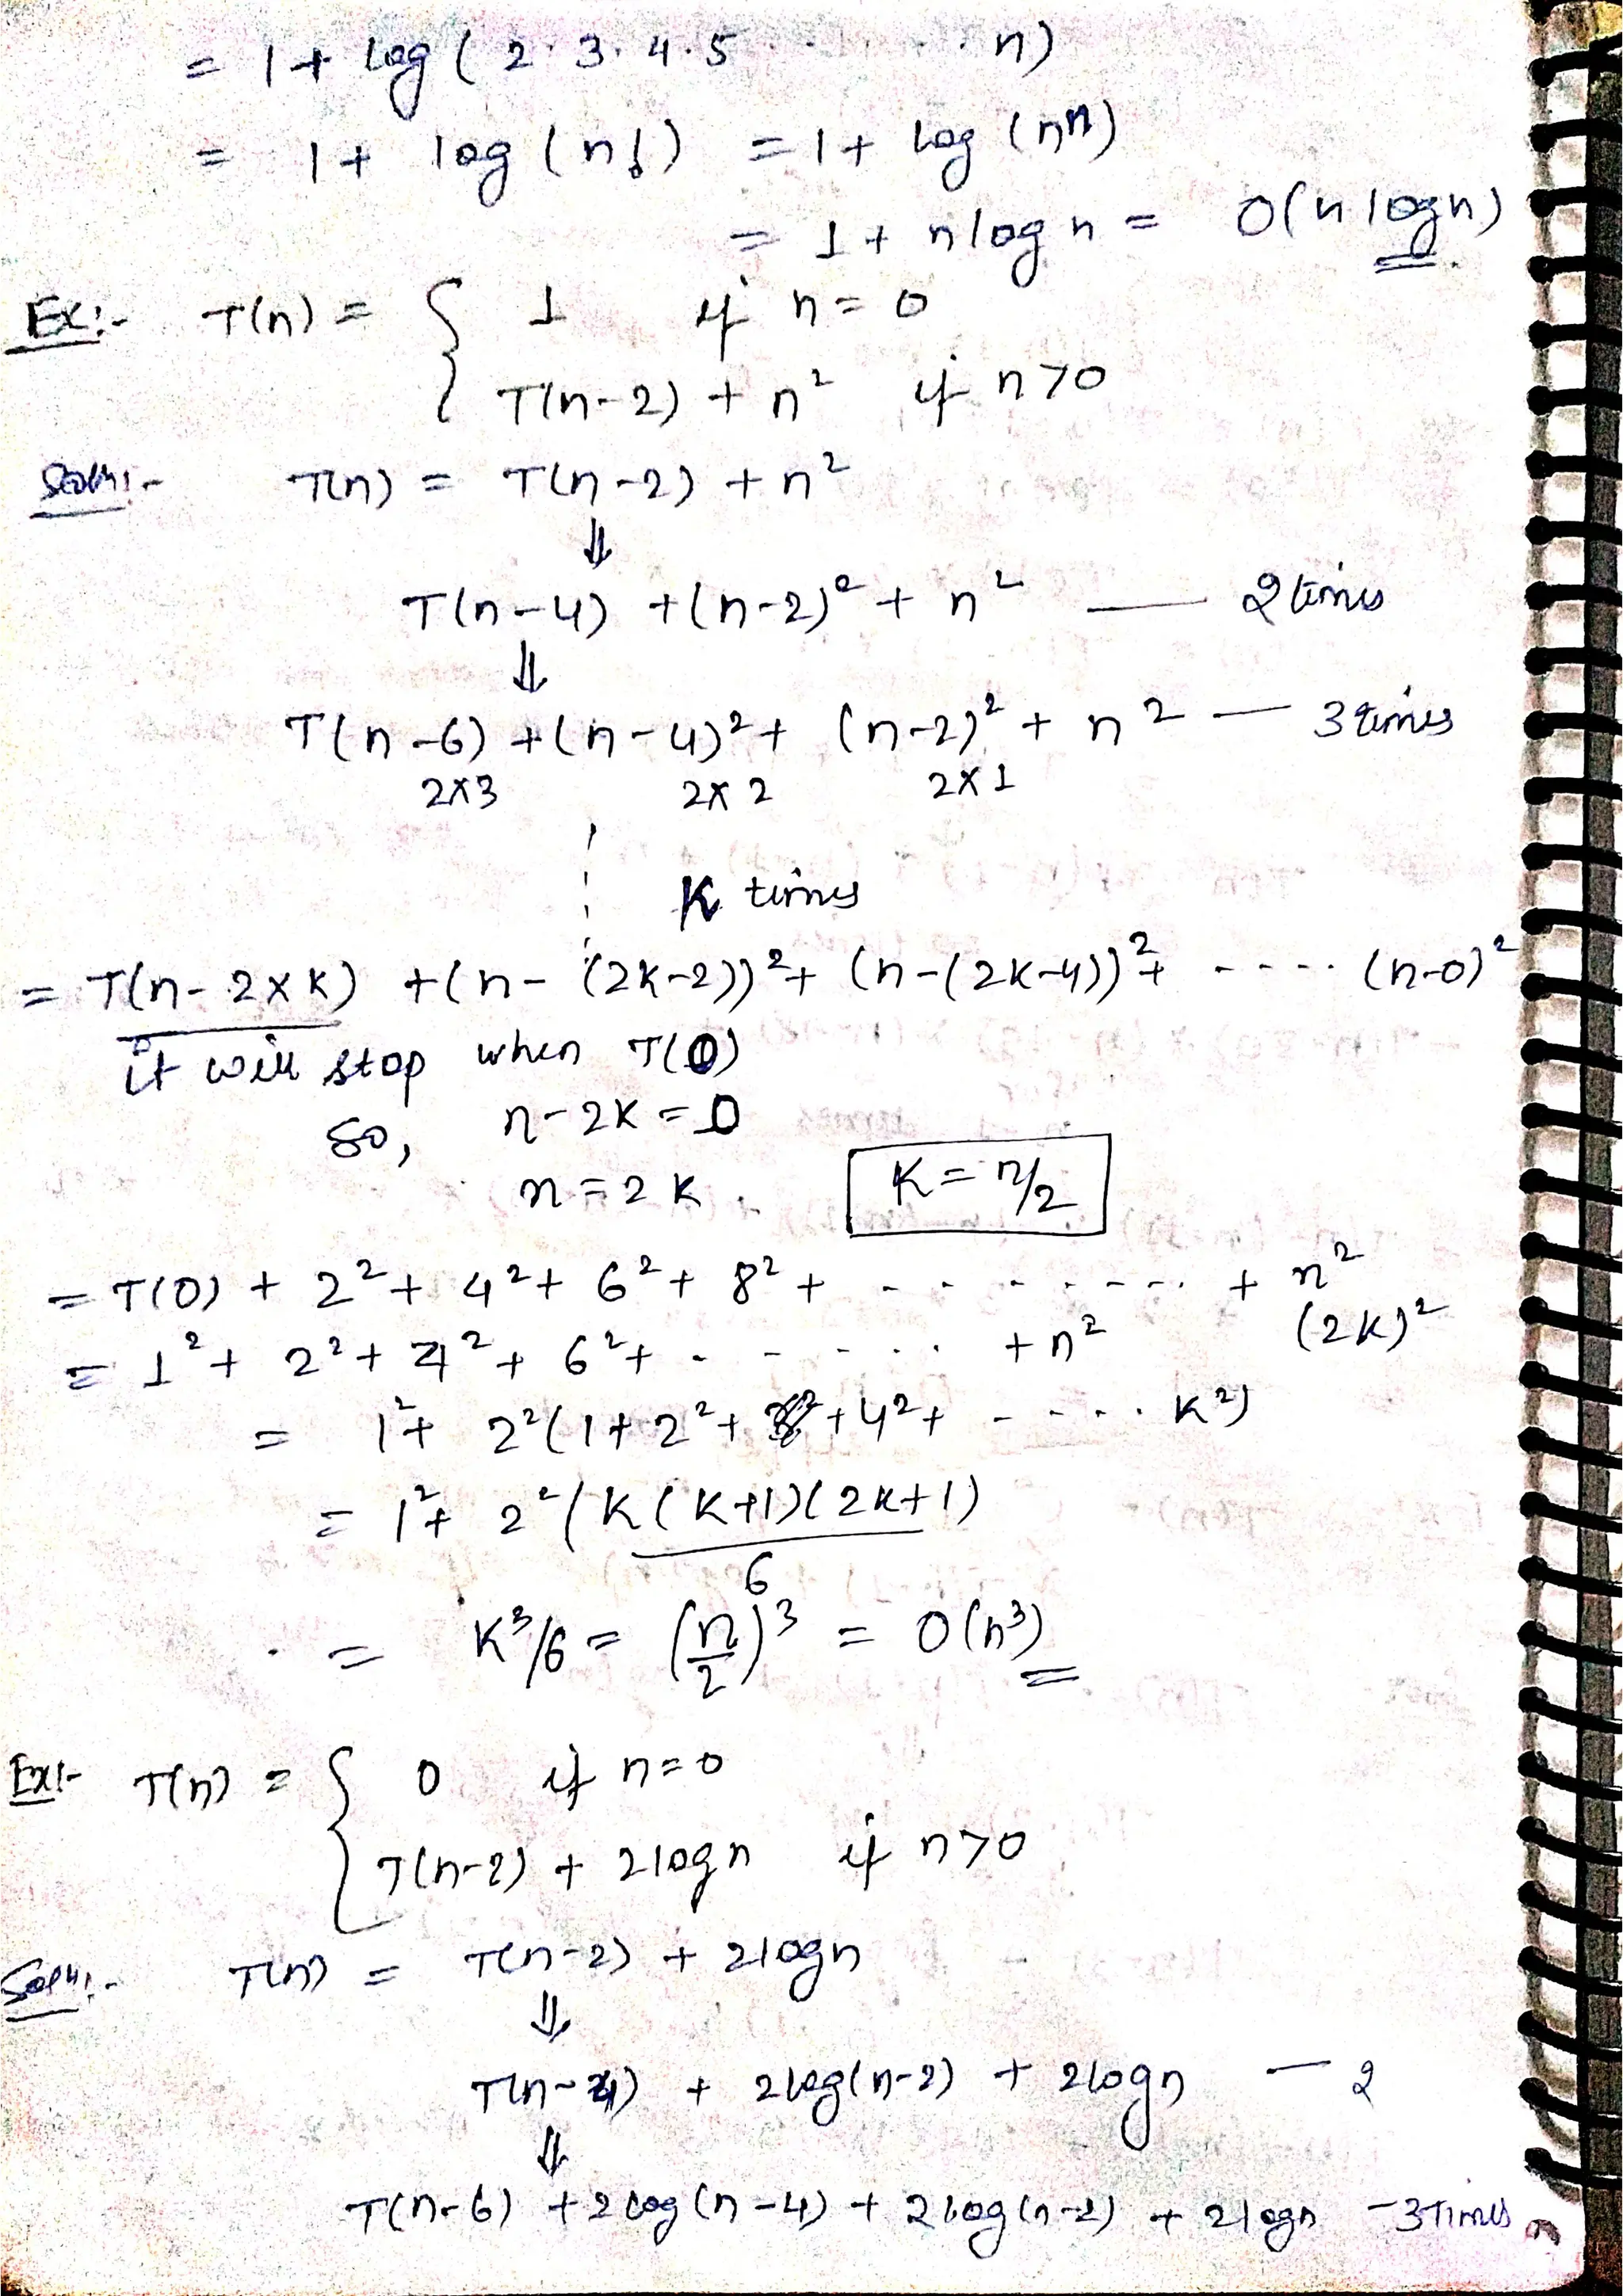 = 1 + log ( 2 · 3 · 4 · 5 · · · · n)
= 1 + log (n!) = 1 + log (nⁿ)
= 1 + n log n = O(n log n)
Ex:- T(n) = { 1 if n = 0
T(n-2) + n² if n > 0
Soln:- T(n) = T(n-2) + n²
⇓
T(n-4) + (n-2)² + n² — 2 times
⇓
T(n-6) + (n-4)² + (n-2)² + n² — 3 times
2×3 2×2 2×1
K times
= T(n-2×K) + (n-(2K-2))² + (n-(2K-4))² + - - - - (n-0)²
it will stop when T(0)
So, n-2K = 0
n = 2K. K = n/2
= T(0) + 2² + 4² + 6² + 8² + - - - - - - - - + n²
(2K)²
= 1² + 2² + 4² + 6² + - - - - - - + n²
= 1² + 2²(1 + 2² + 3² + 4² + - - - - K²)
= 1² + 2² (K(K+1)(2K+1)
6
= K³/6 = (n/2)³ = O(n³)
Ex:- T(n) = { 0 if n=0
T(n-2) + 2logn if n>0
Soln:- T(n) = T(n-2) + 2logn
⇓
T(n-4) + 2log(n-2) + 2logn — 2
⇓
T(n-6) + 2log(n-4) + 2log(n-2) + 2logn - 3 times